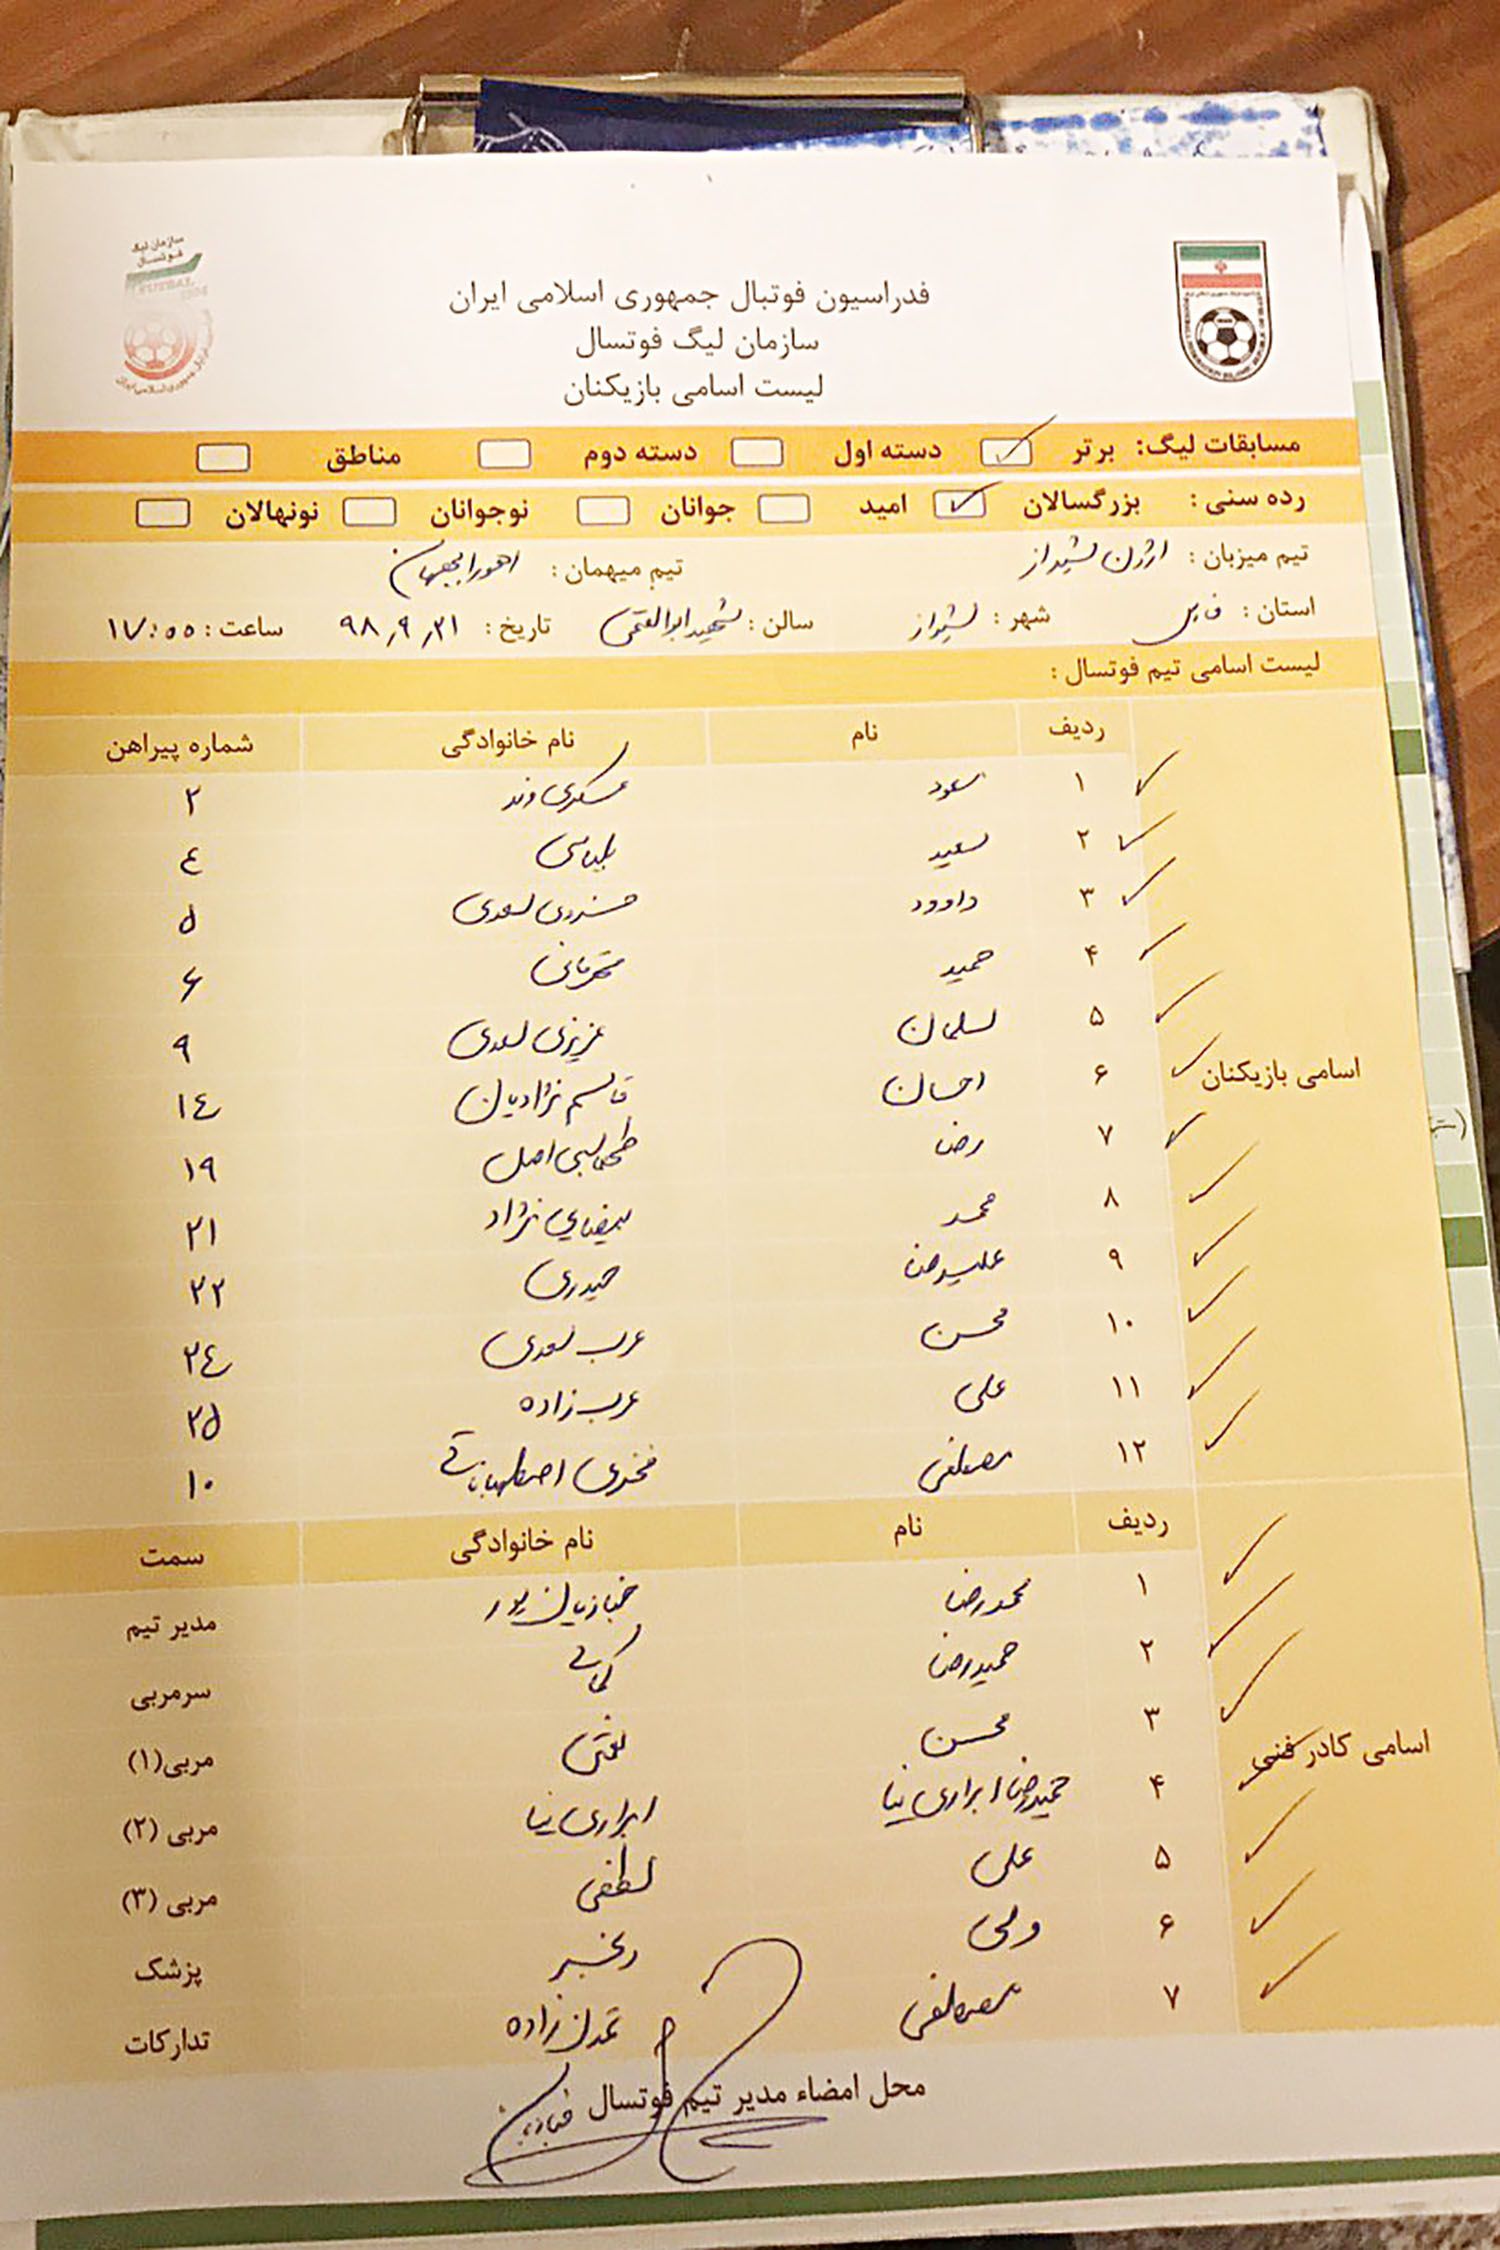 سازمان لیگ
فوتسال
فدراسیون فوتبال جمهوری اسلامی ایران
سازمان لیگ فوتسال
لیست اسامی بازیکنان
مسابقات لیگ: برتر دسته اول دسته دوم مناطق
رده سنی : بزرگسالان امید جوانان نوجوانان نونهالان
تیم میزبان : ارژن شیراز تیم میهمان :
استان : فارس شهر : شیراز سالن : شهید تاریخ : ۹۸,۹,۲۱ ساعت : ۱۷:۰۰
لیست اسامی تیم فوتسال :
ردیف نام نام خانوادگی شماره پیراهن
۱ سعود عسکری وند ۲
۲ سعید ۴
۳ داوود سعدی ۵
۴ حمید قهرمانی ۶
۵ سلمان عزیزی سعدی ۹
اسامی بازیکنان
۶ احسان قاسم نژادیان ۱۴
۷ رضا اصل ۱۹
۸ محمد بیضایی نژاد ۲۱
۹ علیرضا حیدری ۲۲
۱۰ محسن عرب سعدی ۲۴
۱۱ علی عرب زاده ۲۵
۱۲ مصطفی فخری اصطهباناتی ۱۰
ردیف نام نام خانوادگی سمت
۱ محمدرضا خبازیان پور مدیر تیم
۲ حمیدرضا کمالی سرمربی
۳ محسن مربی(۱)
اسامی کادر فنی
۴ حمیدرضا ابراری نیا ابراری نیا مربی (۲)
۵ علی لطفی مربی (۳)
۶ ولی رنجبر پزشک
۷ مصطفی تمدن زاده تدارکات
محل امضاء مدیر تیم فوتسال